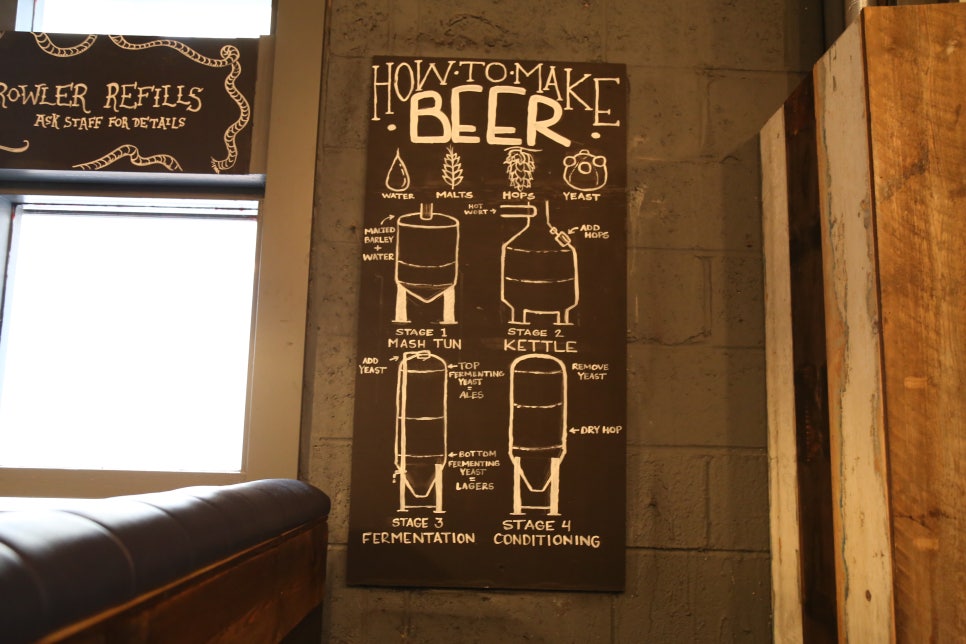 ROWLER REFILLS
ASK STAFF FOR DETAILS
HOW·TO·MAKE
·BEER·
WATER
MALTS
HOPS
YEAST
MALTED
BARLEY
+
WATER
STAGE 1
MASH TUN
HOT
WORT
ADD
HOPS
STAGE 2
KETTLE
ADD
YEAST
TOP
FERMENTING
YEAST
=
ALES
BOTTOM
FERMENTING
YEAST
=
LAGERS
STAGE 3
FERMENTATION
REMOVE
YEAST
DRY HOP
STAGE 4
CONDITIONING